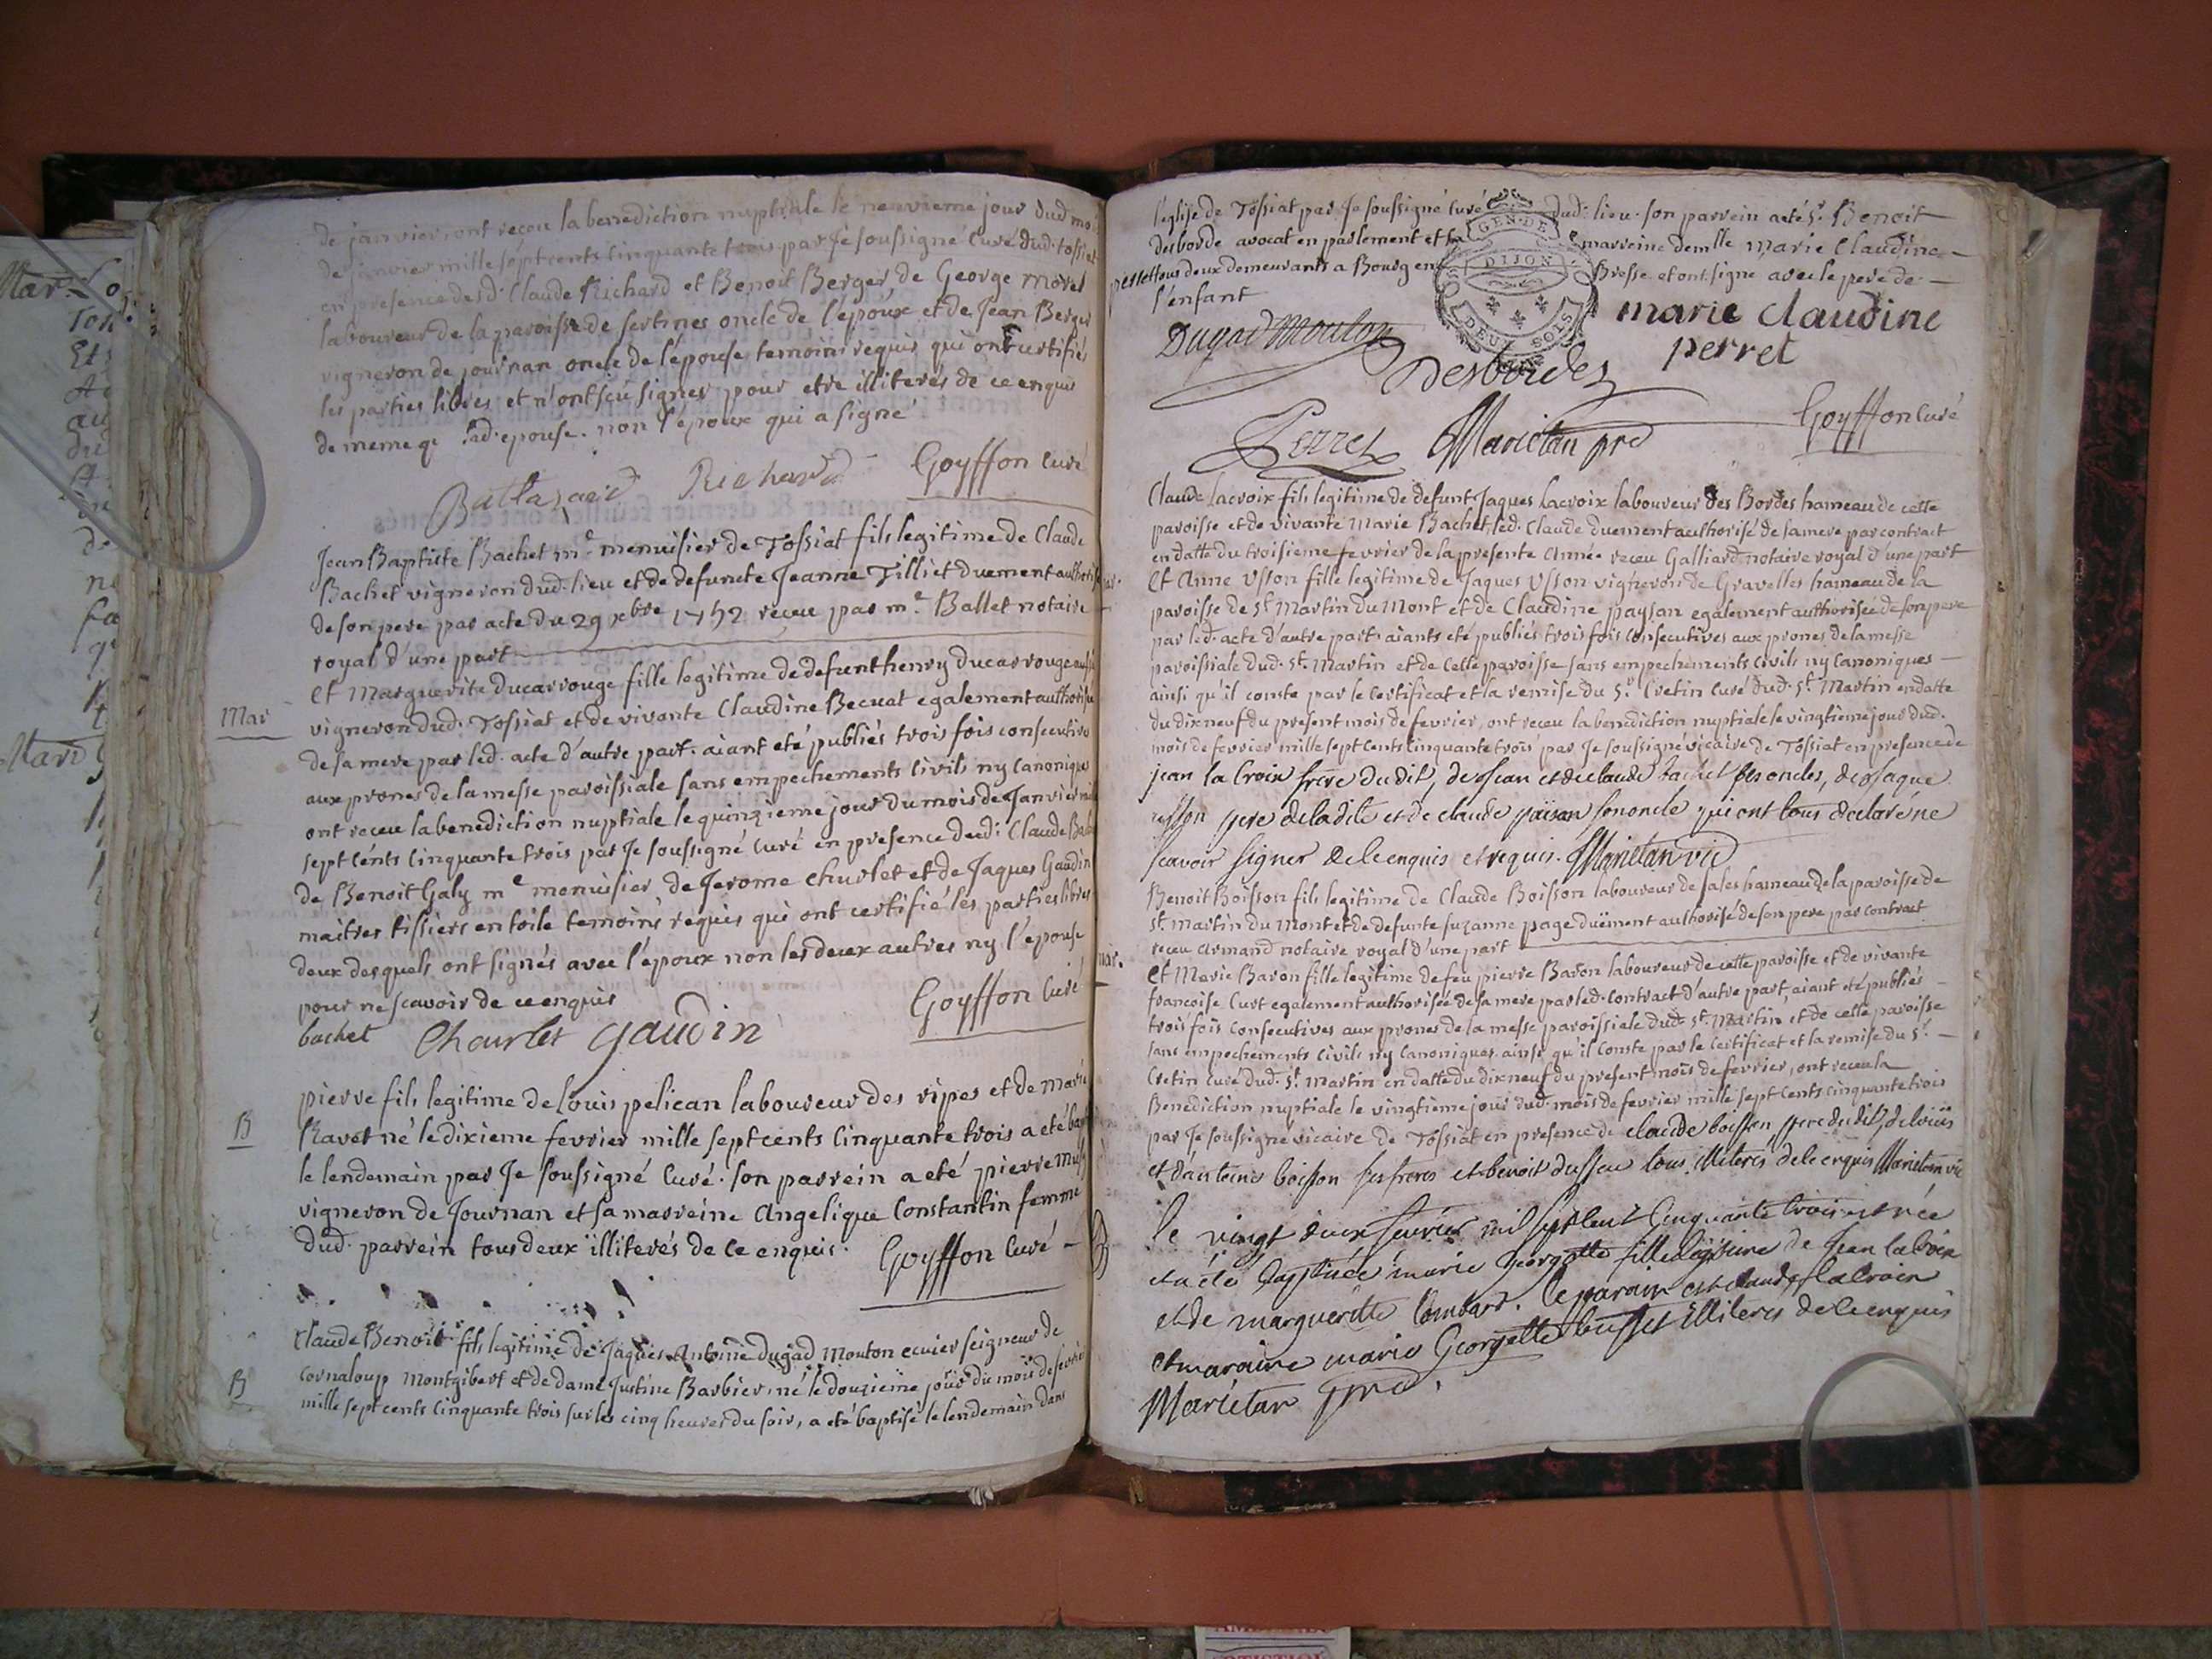 de janvier, ont reçeu la benediction nuptiale le neuvieme jour dud. mois
de janvier mille sept cents cinquante trois par Je soussigné Curé dud. tossiat
en presence desd. Claude Richard et Benoit Berger, de George Morel
laboureur de la paroisse de sertines oncle de l'époux et de Jean Berger
vigneron de journan oncle de l'épouse temoins requis qui ont certifié
les parties libres et n'ont sçu signer pour etre illiterés de ce enquis
de meme q. lad. epouse. non l'époux qui a signé
Richard Goyffon Curé
Jean Baptiste Bachet me. menuisier de Tossiat fils legitime de Claude
Bachet vigneron dud. lieu et de defuncte Jeanne Tilliet duement authorisé
de son pere par acte du 29 xbre 1752 receu par me. Ballet notaire
royal d'une part
Mar
Et Marguerite ducarrouge fille legitime de defunt henry ducarrouge aussi
vigneron dud. Tossiat et de vivante Claudine Becuat egalement authorisée
de sa mere par led. acte d'autre part. aiant eté publiés trois fois consecutives
aux prones de la messe paroissiale sans empechements Civils ny Canoniques
ont receu la benediction nuptiale le quinzieme jour du mois de Janvier mil
sept cents Cinquante trois par Je soussigné Curé en presence dud. Claude
de Benoit Galy me menuisier de Jerome Churlet et de Jaques Gaudin
maitres tissiers en toile temoins requis qui ont certifié les parties libres
deux desquels ont signés avec l'époux non les deux autres ny l'épouse
pour ne scavoir de ce enquis
bachet Churlet gaudin Goyffon Curé
B
pierre fils legitime de Louis pelican laboureur des ripes et de Marie
Ravet né le dixieme fevrier mille sept cents Cinquante trois a eté bap
le lendemain par Je soussigné Curé. son parrein a eté pierre
vigneron de Journan et sa marreine Angelique Constantin femme
dud. parrein tous deux illiterés de ce enquis. Goyffon Curé
B
Claude Benoit fils legitime de Jaques Antoine dugad Mouton ecuier seigneur de
Cornaloup Montgibert et de dame Justine Barbier, né le douzieme jour du mois de fevrier
mille sept cents Cinquante trois sur les cinq heures du soir, a eté baptisé le lendemain dans
l'église de Tossiat par Je soussigné Curé dud. lieu. son parrein a eté Sr. Benoit
desborde avocat en parlement et sa marreine demlle Marie Claudine
perret tous deux demeurants a Bourg en Bresse et ont signé avec le pere de
l'enfant
GEN. DE DIJON
DEUX SOLS
marie claudine
perret
Dugad Mouton
Desbordes
Perret Marietan pre Goyffon Curé
Claude Lacroix fils legitime de defunt Jaques Lacroix laboureur des Bordes hameau de cette
paroisse et de vivante Marie Bachet, led. Claude duement authorisé de sa mere par contract
en datte du troisieme fevrier de la presente Année receu Galliard notaire royal d'une part
Et Anne Usson fille legitime de Jaques Usson vigneron de Gravelles hameau de la
paroisse de St. Martin du Mont et de Claudine paysan egalement authorisée de son pere
par led. acte d'autre part. aiants eté publiés trois fois Consecutives aux prones de la messe
paroissiale dud. St. Martin et de Cette paroisse sans empechements Civils ny Canoniques
ainsi qu'il conste par le Certificat et la remise du Sr. Cretin Curé dud. St. Martin en datte
du dix neuf du present mois de fevrier, ont receu la benediction nuptiale le vingtieme jour dud.
mois de fevrier mille sept Cents Cinquante trois par Je soussigné vicaire de Tossiat en presence de
jean la Croix frere du dit, de Jean et de claude bachet ses oncles, de Jaque
usson pere de la dite et de claude païsan son oncle qui ont tous declaré ne
scavoir signer de le enquis et requis. Marietan vic
Benoit Boisson fils legitime de Claude Boisson laboureur de sales hameau de la paroisse de
St. martin du mont et de defunte suzanne page duëment authorisé de son pere par Contract
receu Armand notaire royal d'une part
mar.
Et Marie Baron fille legitime de feu pierre Baron laboureur de cette paroisse et de vivante
francoise Curt egalement authorisée de sa mere par led. Contract d'autre part, aiant eté publiés
trois fois Consecutives aux prones de la messe paroissiale dud. St. Martin et de cette paroisse
sans empechements Civils ny Canoniques ainsi qu'il Conste par le Certificat et la remise du Sr.
Cretin Curé dud. St. Martin en datte du dix neuf du present mois de fevrier, ont receu la
Benediction nuptiale le vingtieme jour dud. mois de fevrier mille sept Cents cinquante trois
par Je soussigné vicaire de Tossiat en presence de claude boisson, pere du dit, de loüis
et d'antoine boisson ses freres et benoit dusseu tous illiterés de le enquis Marietan vic
B
le vingt deux fevrier mil sept cent Cinquante trois est née
et a été baptisée marie Georgette fille légitime de Jean lacroix
et de marguerite Combard. le parain est claude la Croix
et maraine marie Georgette buffet illiteres de le enquis
Marietan pre.